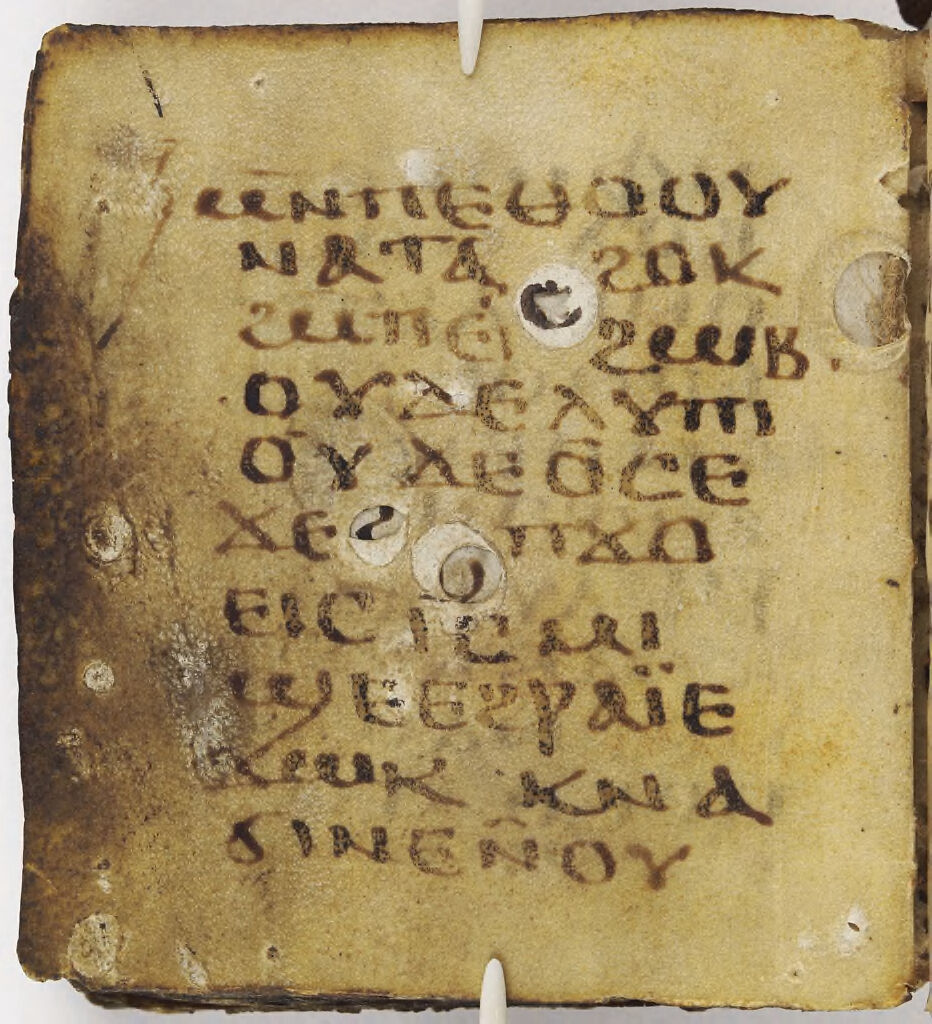 ⲙ̄ⲛⲡⲉⲑⲟⲟⲩ
ⲛⲁⲧⲁ ϩⲟⲕ
ϩⲙⲡⲉ ϩⲱⲃ.
ⲟⲩⲇⲉⲗⲩⲡⲓ
ⲟⲩⲇⲉⲟ̄ⲥⲉ
ϫⲉ ⲡϫⲟ
ⲉⲓⲥ ⲓⲥ ⲙⲓ
ϣⲉⲉϩⲣⲁⲓ̈ⲉ
ϫⲱⲕ ⲕⲛⲁ
ϭⲓⲛⲉⲛ̄ⲟⲩ